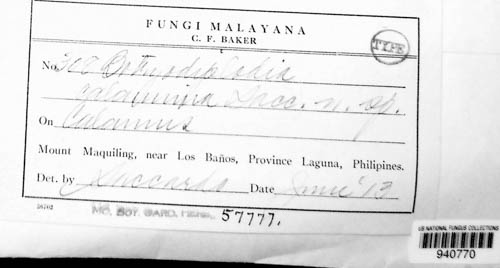 FUNGI MALAYANA
C. F. BAKER
TYPE
No. 312 Botryodiplodia
calamina Sacc. n. sp.
On Calamus
Mount Maquiling, near Los Baños, Province Laguna, Philipines.
Det. by Saccardo Date June '13
26702
MO. BOT. GARD. 57777.
US NATIONAL FUNGUS COLLECTIONS
940770